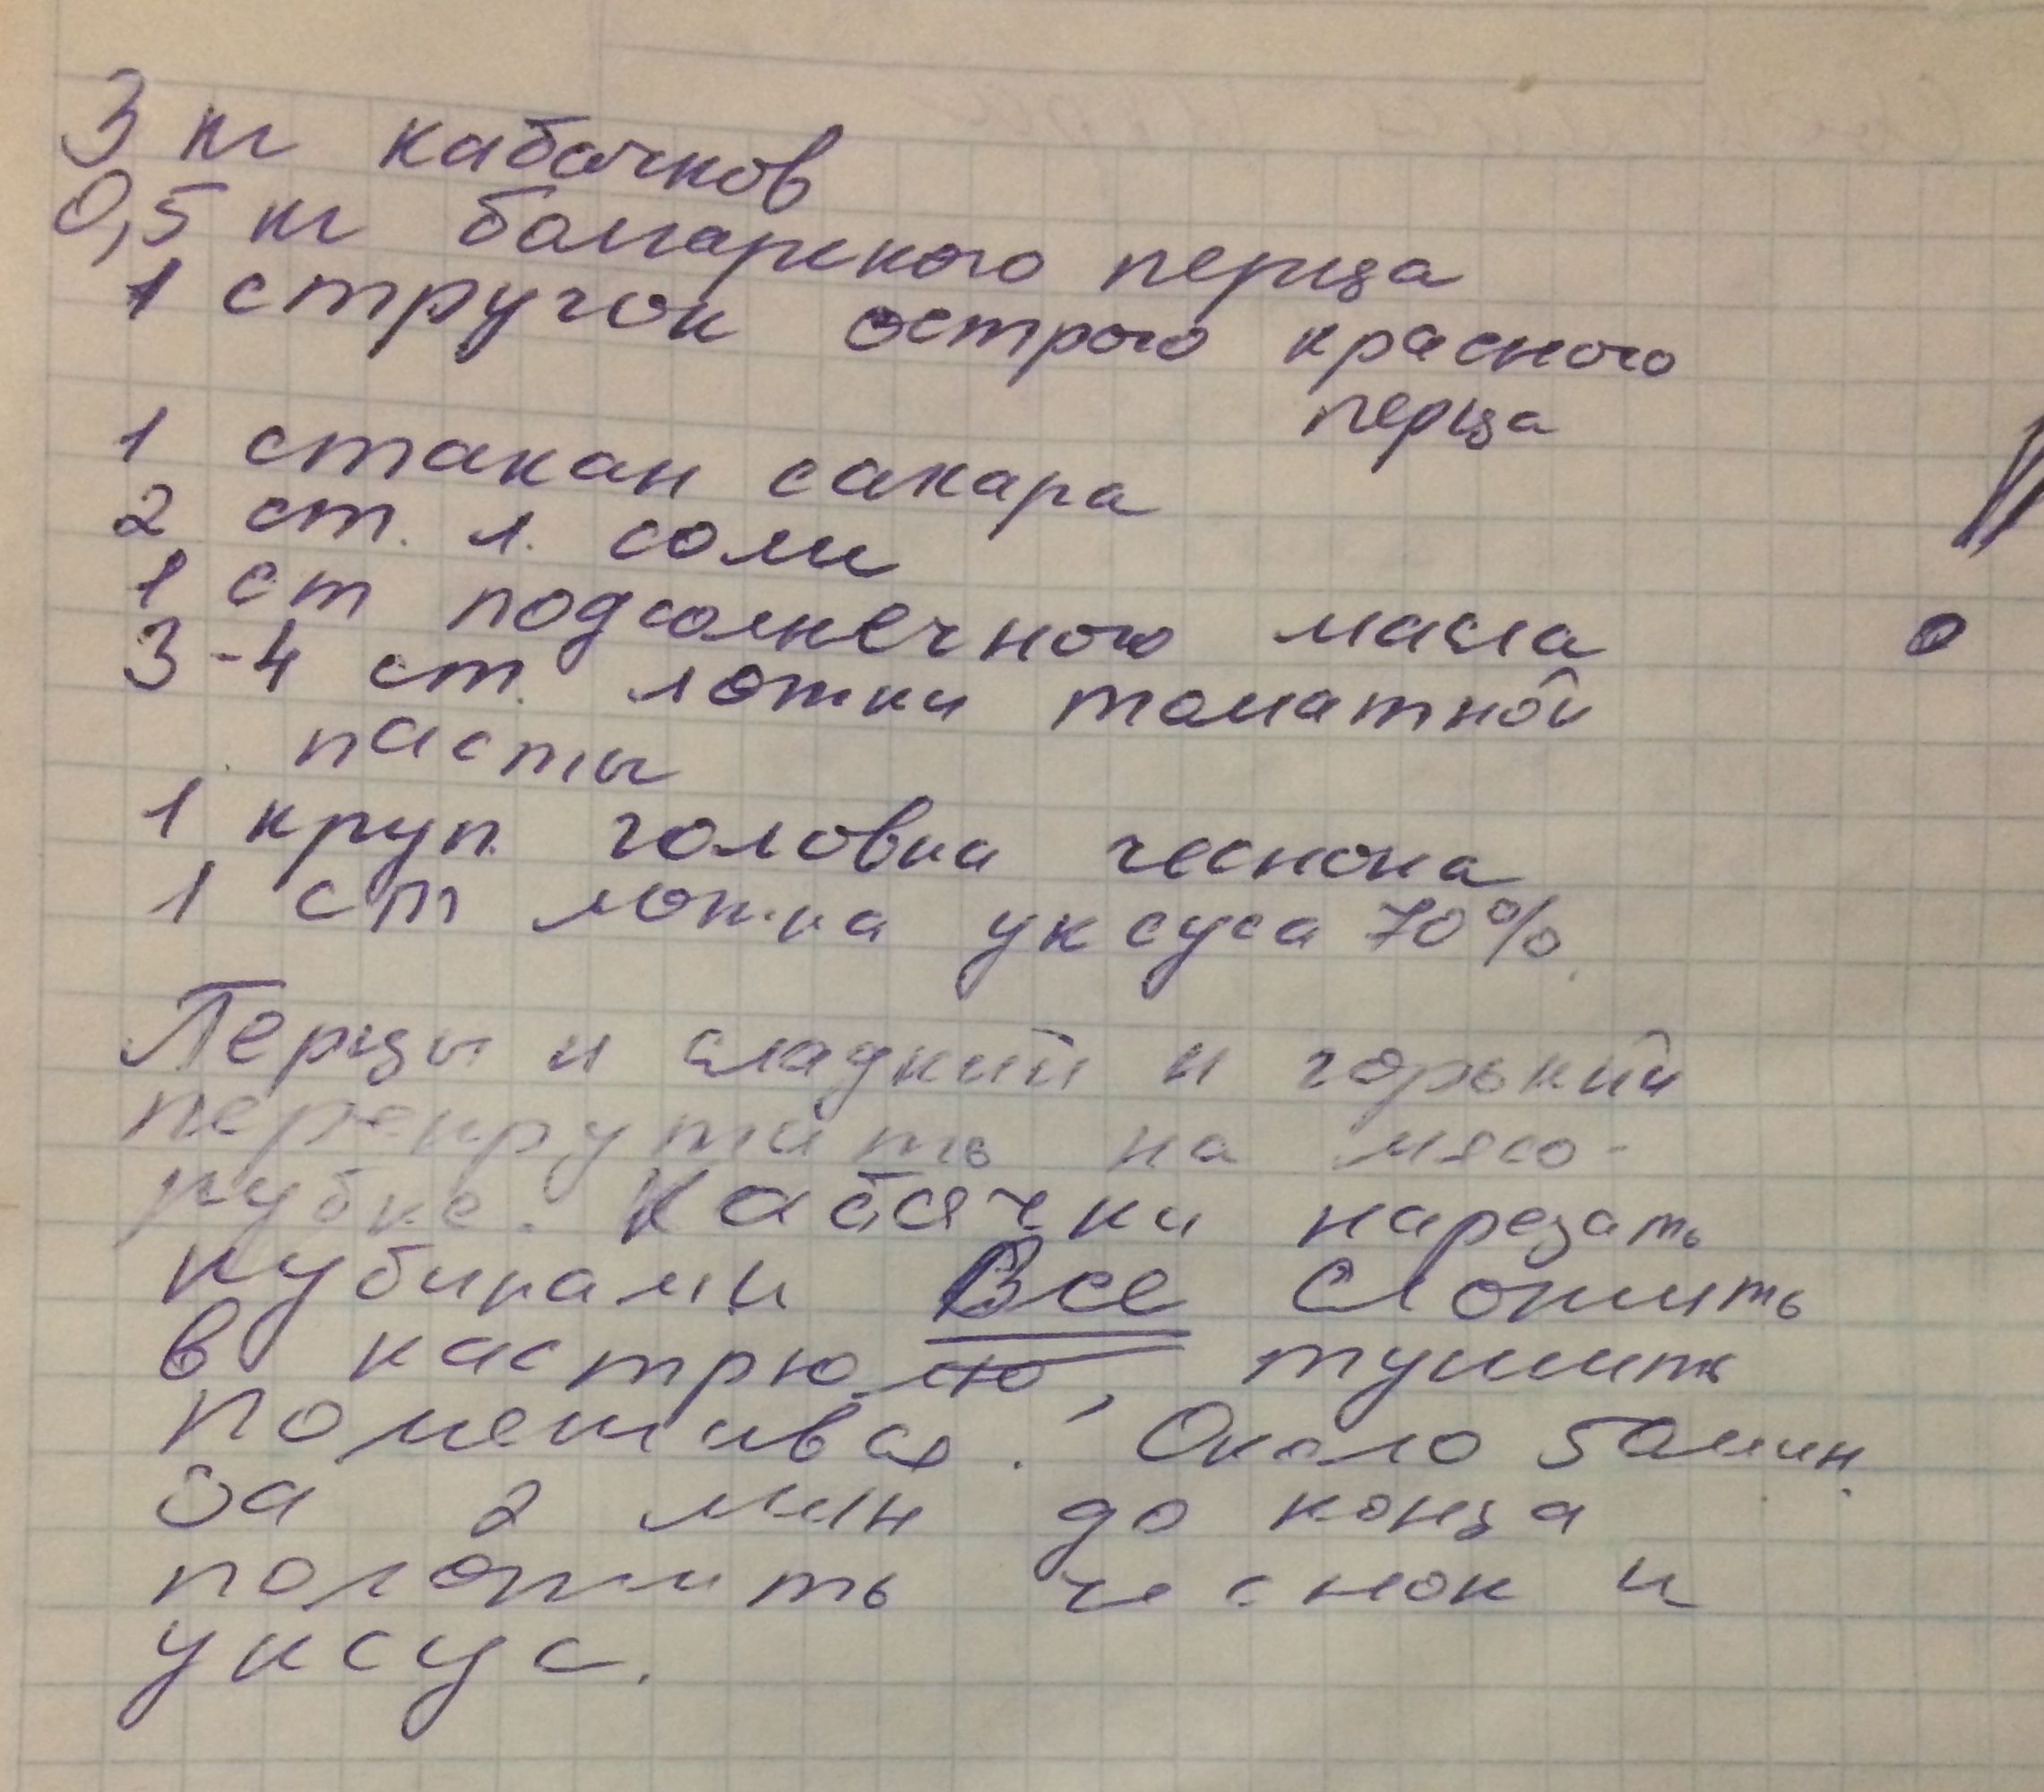 3 кг кабачков
0,5 кг болгарского перца
1 стручок острого красного
перца
1 стакан сахара
2 ст. л. соли
1 ст подсолнечного масла
3-4 ст. ложки томатной
пасты
1 круп. головка чеснока
1 ст ложка уксуса 70%.
Перцы и сладкий и горький
перекрутить на мясо-
рубке. Кабачки нарезать
кубиками Все сложить
в кастрюлю, тушить
помешивая. Около 50 мин.
За 2 мин до конца
положить чеснок и
уксус.